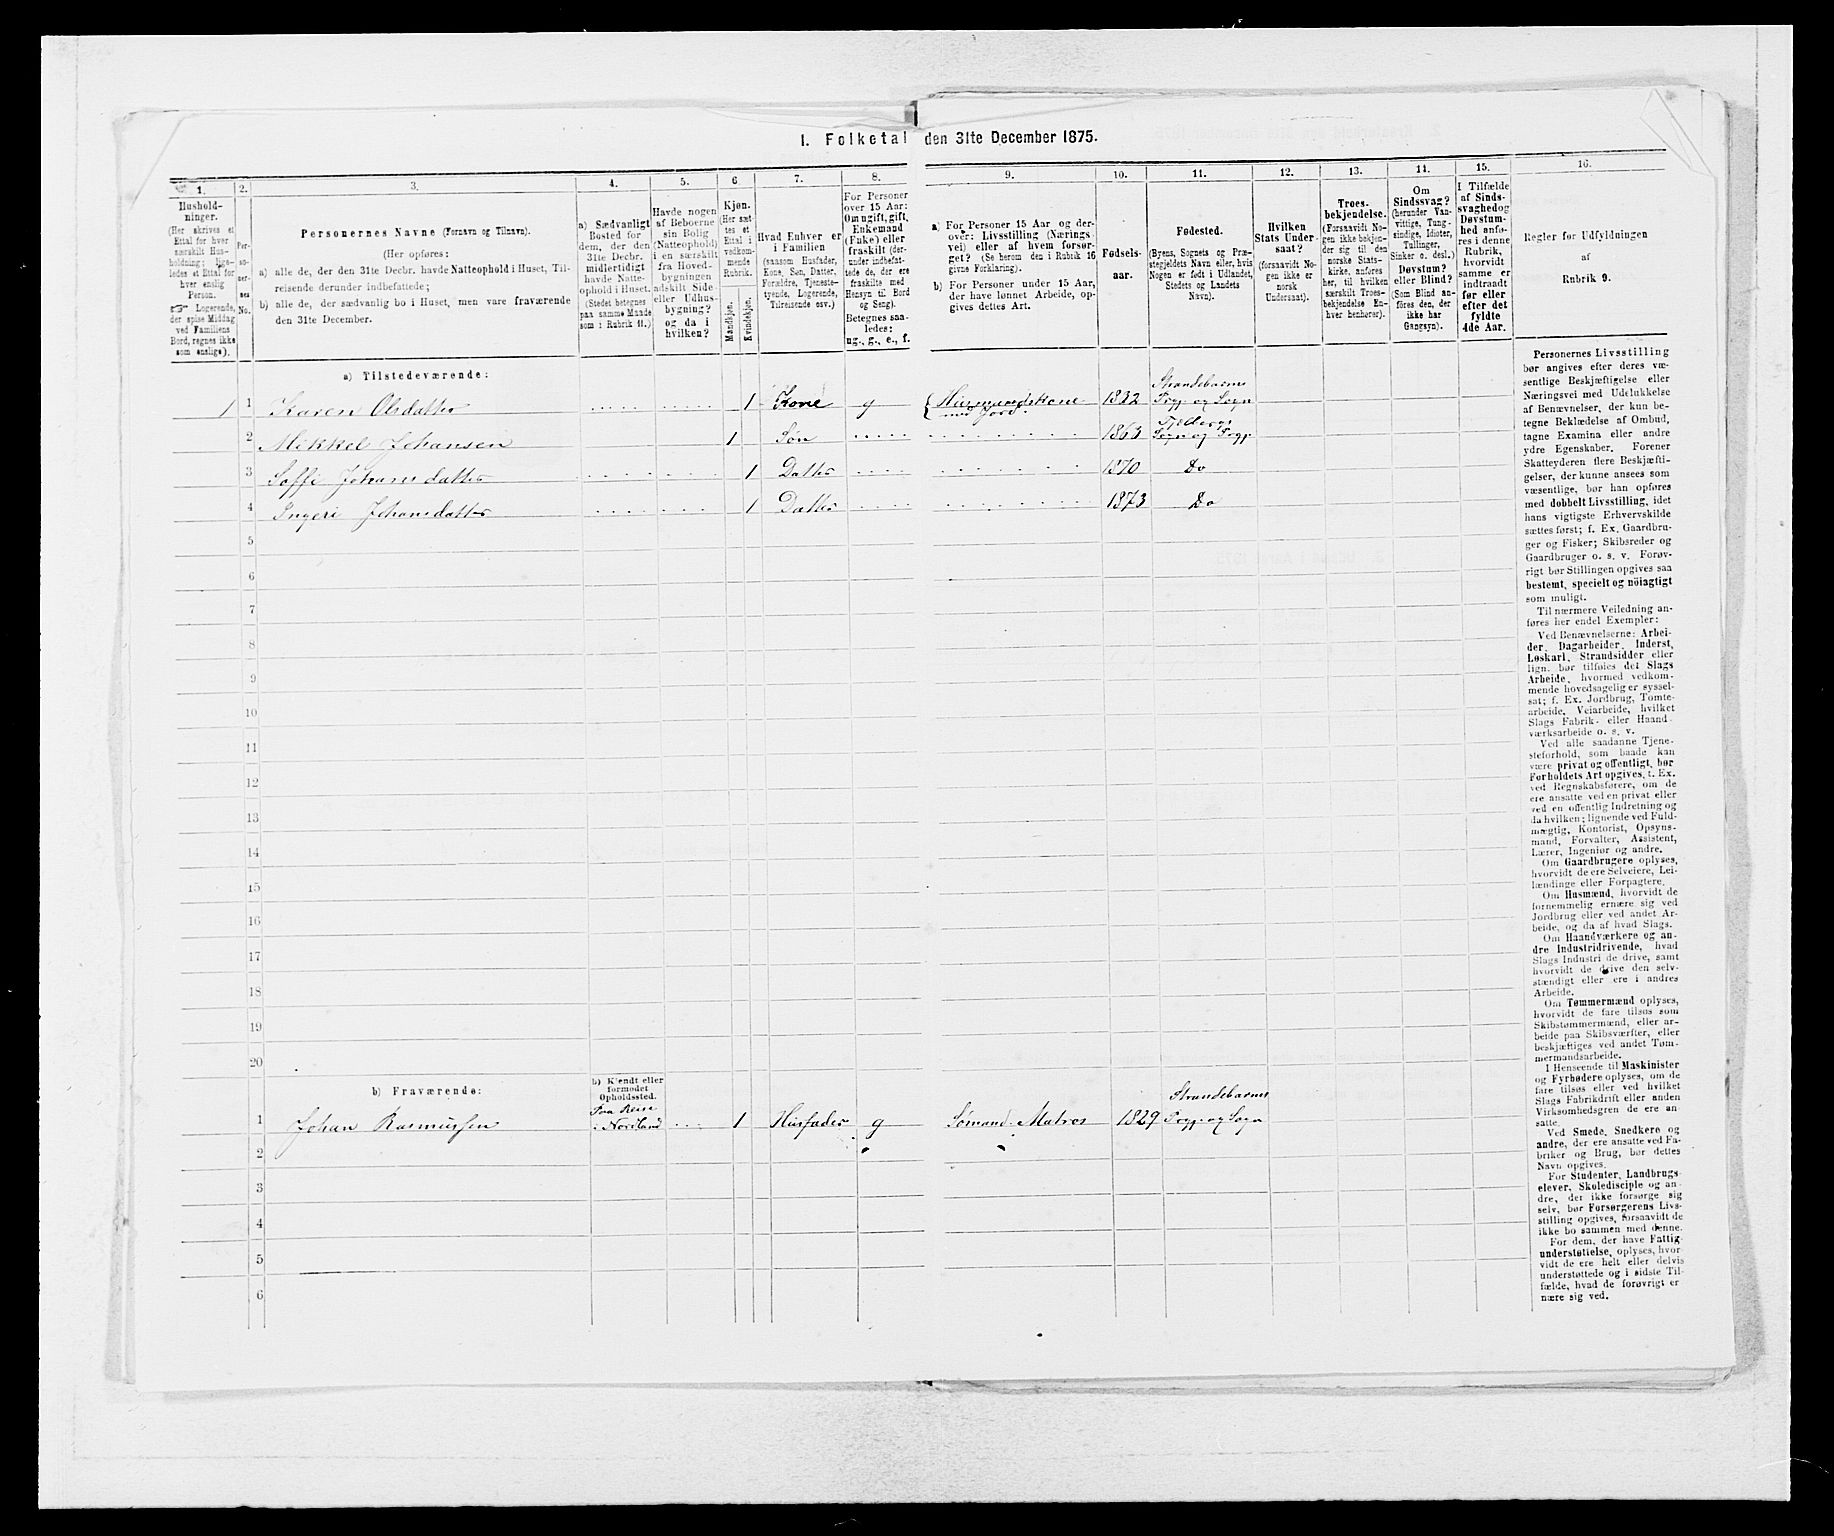 1. Folketal den 31te December 1875.
1.
Hushold-
ninger.
(Her skrives et
Ettal for hver
særskilt Hus-
holdning; lige-
ledes et Ettal for
hver enslig
Person.
Logerende,
der spise Middag
ved Familiens
Bord, regnes ikke
som enslige).
2.
Per-
so-
ner-
nes
No.
3.
Personernes Navne (Fornavn og Tilnavn).
(Her opføres:
a) alle de, der den 31te Decbr. havde Natteophold i Huset, Til-
reisende derunder indbefattede;
b) alle de, der sædvanlig bo i Huset, men vare fraværende
den 31te December.
4.
a) Sædvanligt
Bosted for
dem, der den
31te Decbr.
midlertidigt
havde Natte-
ophold i Huset.
(Stedet betegnes
paa samme Maade
som i Rubrik 11.)
5.
Havde nogen
af Beboerne
sin Bolig
(Natteophold)
i en særskilt
fra Hoved-
bygningen
adskilt Side-
eller Udhus-
bygning?
og da i
hvilken?
6
Kjøn.
(Her sæt-
tes et
Ettal i
vedkom-
mende
Rubrik.
Mandkjøn.
Kvindekjøn.
7.
Hvad Enhver er
i Familien
(saasom Husfader,
Kone, Søn, Datter,
Forældre, Tjeneste-
tyende, Logerende,
Tilreisende osv.)
8.
For Personer
over 15 Aar:
Om ugift, gift,
Enkemand
(Enke) eller
fraskilt (der-
under indbefat-
tede de, der ere
fraskilte med
Hensyn til Bord
og Seng).
Betegnes saa-
ledes:
ug., g., e., f.
9.
a) For Personer 15 Aar og der-
over: Livsstilling (Nærings-
vei) eller af hvem forsør-
get? (Se herom den i Rubrik 16
givne Forklaring).
b) For Personer under 15 Aar,
der have lønnet Arbeide, op-
gives dettes Art.
10.
Fødsels-
aar.
11.
Fødested.
(Byens, Sognets og Præ-
stegjeldets Navn eller, hvis
Nogen er født i Udlandet,
Stedets og Landets
Navn).
12.
Hvilken
Stats Under-
saat?
(forsaavidt No-
gen ikke er
norsk
Undersaat).
13.
Troes-
bekjendelse.
(Forsaavidt No-
gen ikke bekjen-
der sig til den
norske Stats-
kirke, anføres
her, til hvilken
særskilt Troes-
bekjendelse En-
hver henhører).
14.
Om
Sindssvag?
(herunder Van-
vittige, Tung-
sindige, Idioter,
Tullinger,
Sinker o. desl.)
Døvstum?
eller Blind?
(Som Blind an-
føres den, der
ikke har
Gangsyn).
15.
I Tilfælde
af Sinds-
svaghed og
Døvstum-
hed anfø-
res i denne
Rubrik,
hvorvidt
samme er
indtraadt
før eller
efter det
fyldte
4de Aar.
16.
Regler for Udfyldningen
af
Rubrik 9.
a) Tilstedeværende:
1 1 Karen Olsdatter 1 Kone g Huusmandskone med Jord. 1832 Strandebarms Prgp og Sogn
2 Mikkel Johansen 1 Søn 1863 Sogn og Prgp
3 Soffi Johansdatter 1 Datter 1870 Do
4 Ingeri Johansdatter 1 Datter 1873 Do
5
6
7
8
9
10
11
12
13
14
15
16
17
18
19
20
b) Fraværende:
b) Kjendt eller
formodet
Opholdssted.
1 Johan Rasmussen Paa Reise i Nordland 1 Husfader g Sømand. Matros 1829 Strandebarms Prgp og Sogn
2
3
4
5
6
Personernes Livsstilling
bør angives efter deres væ-
sentlige Beskjæftigelse eller
Næringsvei med Udelukkelse
af Benævnelser, der kun be-
tegne Beklædelse af Ombud,
tagne Examina eller andre
ydre Egenskaber. Forener
Skatteyderen flere Beskjæfti-
gelser, der kunne ansees som
væsentlige, bør han opføres
med dobbelt Livsstilling, idet
hans vigtigste Erhvervskilde
sættes først; f. Ex. Gaardbru-
ger og Fisker; Skibsreder og
Gaardbruger o. s. v. Forøv-
rigt bør Stillingen opgives saa
bestemt, specielt og nöiagtigt
som muligt.
Til nærmere Veiledning an-
føres her endel Exempler:
Ved Benævnelserne: Arbei-
der, Dagarbeider, Inderst,
Løskarl, Strandsidder eller
lign. bør tilføies det Slags
Arbeide, hvormed vedkom-
mende hovedsagelig er syssel-
sat; f. Ex. Jordbrug, Tomte-
arbeide, Veiarbeide, hvilket
Slags Fabrik- eller Haand-
værksarbeide o. s. v.
Ved alle saadanne Tjene-
steforhold, som baade kan
være privat og offentligt, bør
Forholdets Art opgives, t. Ex.
ved Regnskabsførere, om de
ere ansatte ved en privat eller
ved en offentlig Indretning og
da hvilken; lignende ved Fuld-
mægtig, Kontorist, Opsyns-
mand, Forvalter, Assistent,
Lærer, Ingeniør og andre.
Om Gaardbrugere oplyses,
hvorvidt de ere Selveiere, Lei-
lændinge eller Forpagtere.
Om Husmænd, hvorvidt de
fornemmelig ernære sig ved
Jordbrug eller ved andet Ar-
beide, og da af hvad Slags.
Om Haandværkere og an-
dre Industridrivende, hvad
Slags Industri de drive, samt
hvorvidt de drive den selv-
stændigt eller ere i andres
Arbeide.
Om Tømmermænd oplyses,
hvorvidt de fare tilsøs som
Skibstømmermænd, eller ar-
beide paa Skibsværfter, eller
beskjæftiges ved andet Tøm-
mermandsarbeide.
I Henseende til Maskinister
og Fyrbødere oplyses, om de
fare tilsøs eller ved hvilket
Slags Fabrikdrift eller anden
Virksomhedsgren de ere an-
satte.
Ved Smede, Snedkere og
andre, der ere ansatte ved Fa-
briker og Brug, bør dettes
Navn opgives.
For Studenter, Landbrugs-
elever, Skoledisciple og an-
dre, der ikke forsørge sig
selv, bør Forsørgerens Livs-
stilling opgives, forsaavidt de
ikke bo sammen med denne.
For dem, der have Fattig-
understøttelse, oplyses, hvor-
vidt de ere helt eller delvis
understøttede og i sidste Til-
fælde, hvad de forøvrigt er
nære sig ved.